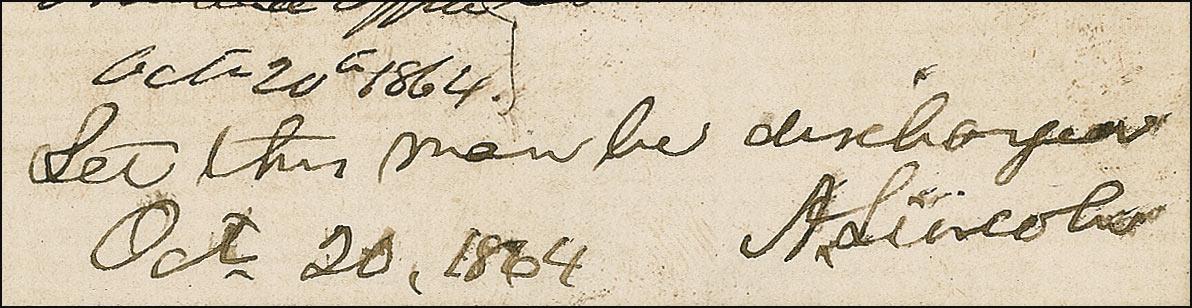 Office
Oct 20th 1864.
Let this man be discharged
Oct. 20, 1864 A. Lincoln